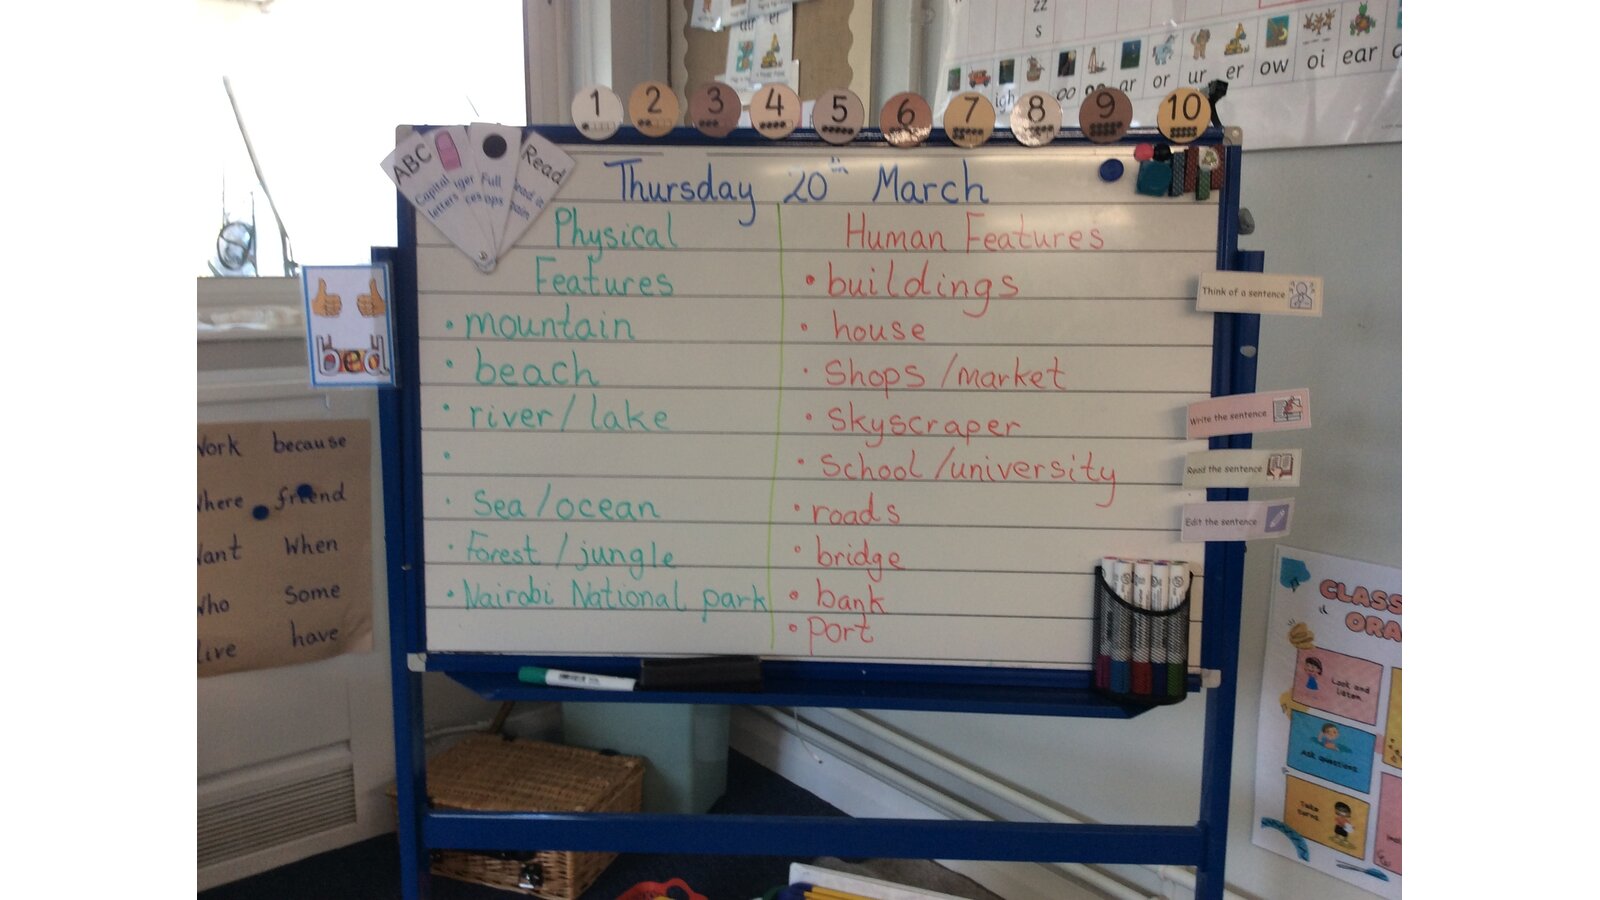 zz
s
igh oo ar or ur er ow oi ear
1 2 3 4 5 6 7 8 9 10
ABC
Capital letters
Full
Read
Thursday 20th March
Physical
Features
• mountain
• beach
• river/lake
•
• Sea/ocean
• Forest/jungle
• Nairobi National park
Human Features
• buildings
• house
• Shops/market
• Skyscraper
• School/university
• roads
• bridge
• bank
• port
bed
Work because
where friend
want When
who Some
live have
Think of a sentence
Write the sentence
Read the sentence
Edit the sentence
CLASS
ORA
Look and
listen
Ask questions
Take
turns